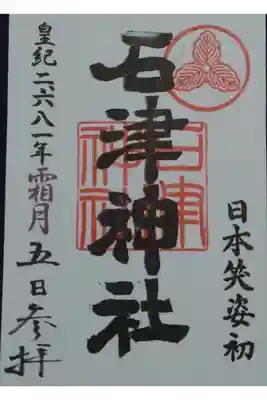 日本笑姿初
石津神社
石津神社
皇紀二、六八一年霜月五日参拝